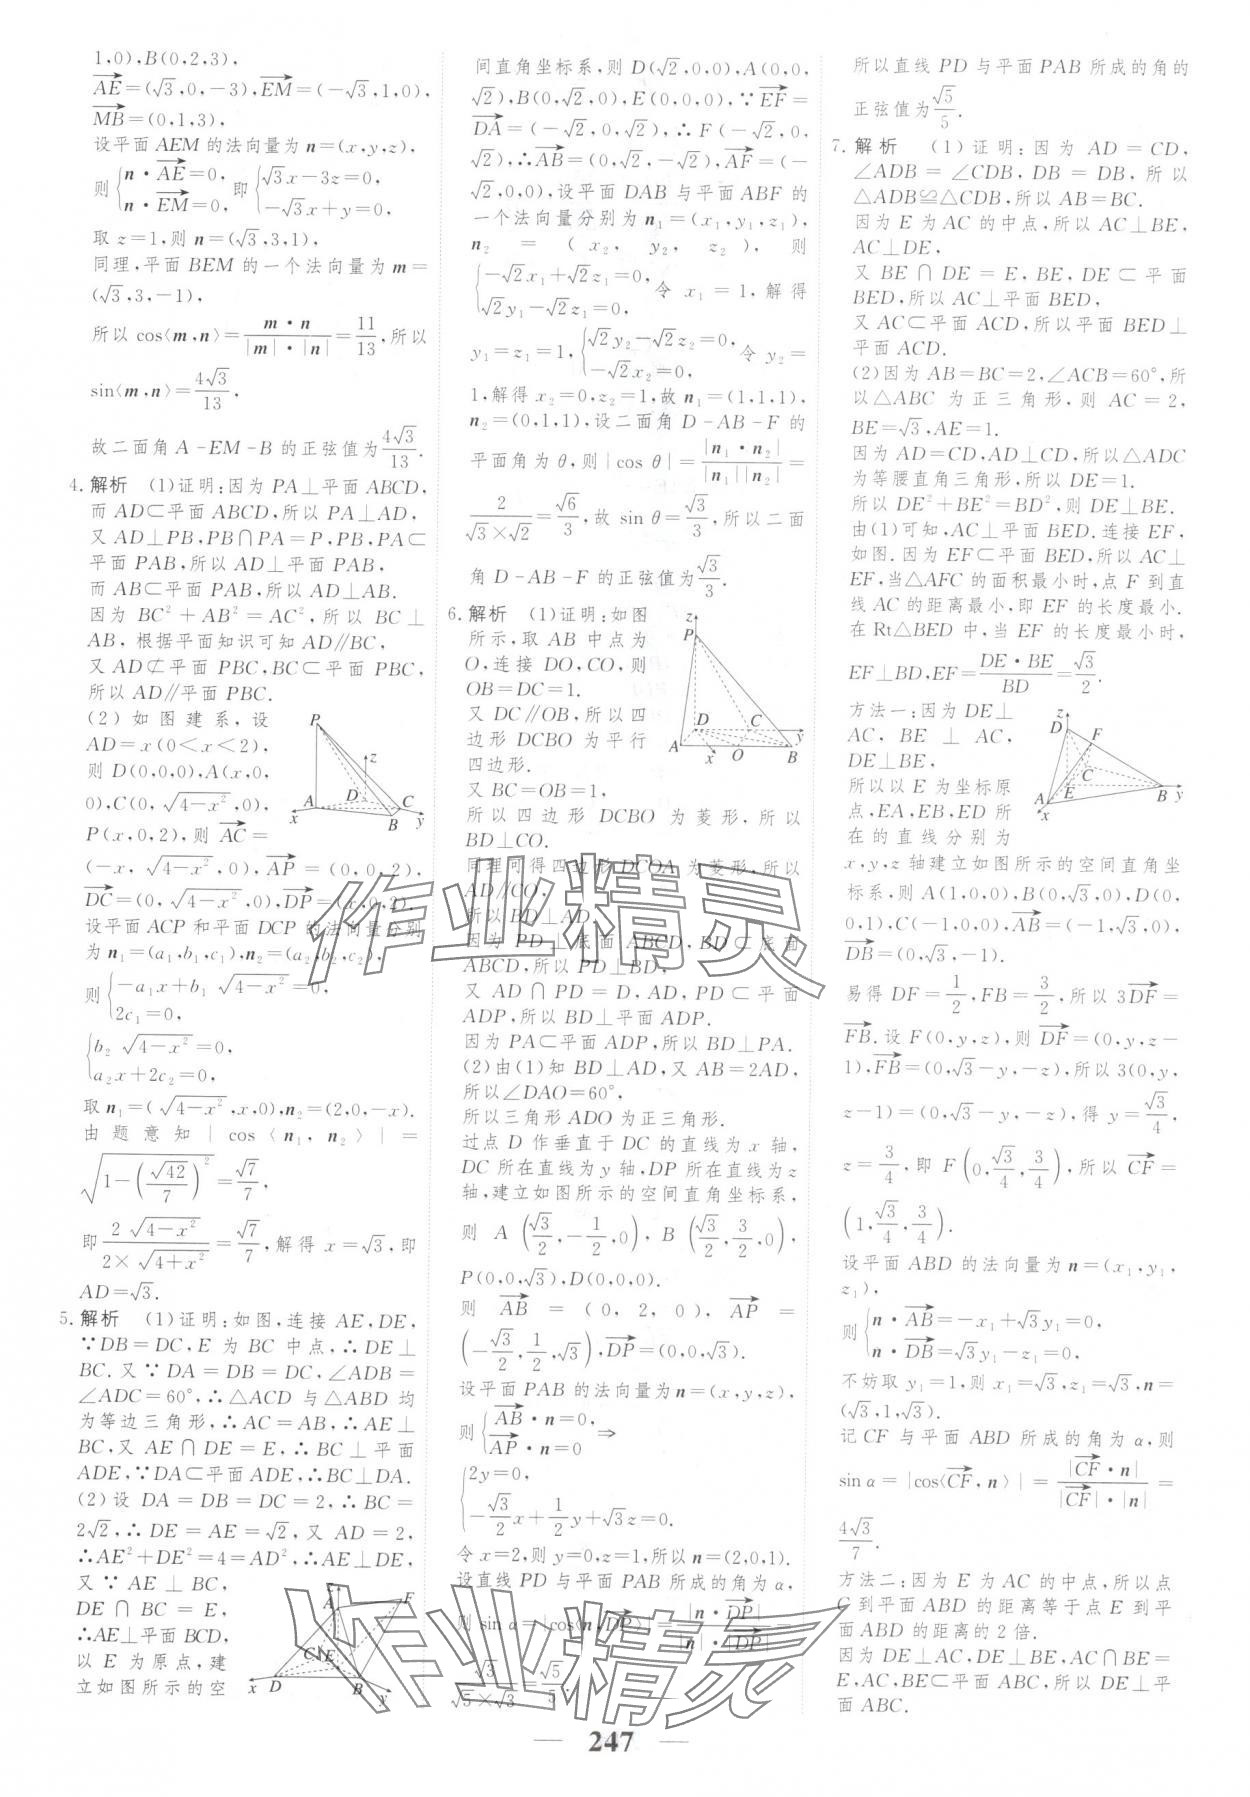 1,0),B(0,2,3),
AE=(√3,0,-3),EM=(-√3,1,0),
MB=(0,1,3),
设平面 AEM 的法向量为 n=(x,y,z),
则{n·AE=0, n·EM=0, 即{√3x-3z=0, -√3x+y=0,
取 z=1,则 n=(√3,3,1),
同理,平面 BEM 的一个法向量为 m=
(√3,3,-1),
所以 cos⟨m,n⟩=m·n/(|m|·|n|)=11/13,所以
sin⟨m,n⟩=4√3/13,
故二面角 A-EM-B 的正弦值为4√3/13.
4.解析 (1)证明:因为 PA⊥平面 ABCD,
而 AD⊂平面 ABCD,所以 PA⊥AD,
又 AD⊥PB,PB∩PA=P,PB,PA⊂
平面 PAB,所以 AD⊥平面 PAB,
而 AB⊂平面 PAB,所以 AD⊥AB.
因为 BC²+AB²=AC²,所以 BC⊥
AB,根据平面知识可知 AD∥BC,
又 AD⊄平面 PBC,BC⊂平面 PBC,
所以 AD∥平面 PBC.
(2) 如图建系,设
AD=x(0<x<2),
则 D(0,0,0),A(x,0,
0),C(0,√(4-x²),0),
P(x,0,2),则 AC=
(-x,√(4-x²),0),AP=(0,0,2),
DC=(0,√(4-x²),0),DP=(x,0,2),
设平面 ACP 和平面 DCP 的法向量分别
为 n₁=(a₁,b₁,c₁),n₂=(a₂,b₂,c₂),
则{-a₁x+b₁√(4-x²)=0, 2c₁=0,
{b₂√(4-x²)=0, a₂x+2c₂=0,
取 n₁=(√(4-x²),x,0),n₂=(2,0,-x).
由题意知|cos⟨n₁,n₂⟩|=
√(1-(√42/7)²)=√7/7,
即 2√(4-x²)/(2×√(4+x²))=√7/7,解得 x=√3,即
AD=√3.
5.解析 (1)证明:如图,连接 AE,DE,
∵DB=DC,E 为 BC 中点,∴DE⊥
BC.又∵DA=DB=DC,∠ADB=
∠ADC=60°,∴△ACD 与△ABD 均
为等边三角形,∴AC=AB,∴AE⊥
BC,又 AE∩DE=E,∴BC⊥平面
ADE,∵DA⊂平面 ADE,∴BC⊥DA.
(2)设 DA=DB=DC=2,∴BC=
2√2,∴DE=AE=√2,又 AD=2,
∴AE²+DE²=4=AD²,∴AE⊥DE,
又∵AE⊥BC,
DE∩BC=E,
∴AE⊥平面 BCD,
以 E 为原点,建
立如图所示的空
间直角坐标系,则 D(√2,0,0),A(0,0,
√2),B(0,√2,0),E(0,0,0),∵EF=
DA=(-√2,0,√2),∴F(-√2,0,
√2),∴AB=(0,√2,-√2),AF=(-
√2,0,0),设平面 DAB 与平面 ABF 的
一个法向量分别为 n₁=(x₁,y₁,z₁),
n₂=(x₂,y₂,z₂),则
{-√2x₁+√2z₁=0, √2y₁-√2z₁=0, 令 x₁=1,解得
y₁=z₁=1,{√2y₂-√2z₂=0, -√2x₂=0, 令 y₂=
1,解得 x₂=0,z₂=1,故 n₁=(1,1,1),
n₂=(0,1,1),设二面角 D-AB-F 的
平面角为 θ,则|cos θ|=|n₁·n₂|/(|n₁||n₂|)=
2/(√3×√2)=√6/3,故 sin θ=√3/3,所以二面
角 D-AB-F 的正弦值为√3/3.
6.解析 (1)证明:如图
所示,取 AB 中点为
O,连接 DO,CO,则
OB=DC=1.
又 DC∥OB,所以四
边形 DCBO 为平行
四边形.
又 BC=OB=1,
所以四边形 DCBO 为菱形,所以
BD⊥CO.
同理可得四边形 DCOA 为菱形,所以
AD∥CO,
所以 BD⊥AD.
因为 PD⊥底面 ABCD,BD⊂底面
ABCD,所以 PD⊥BD,
又 AD∩PD=D,AD,PD⊂平面
ADP,所以 BD⊥平面 ADP.
因为 PA⊂平面 ADP,所以 BD⊥PA.
(2)由(1)知 BD⊥AD,又 AB=2AD,
所以∠DAO=60°,
所以三角形 ADO 为正三角形.
过点 D 作垂直于 DC 的直线为 x 轴,
DC 所在直线为 y 轴,DP 所在直线为 z
轴,建立如图所示的空间直角坐标系,
则 A(√3/2,-1/2,0),B(√3/2,3/2,0),
P(0,0,√3),D(0,0,0).
则 AB=(0,2,0),AP=
(-√3/2,1/2,√3),DP=(0,0,√3).
设平面 PAB 的法向量为 n=(x,y,z),
则{AB·n=0, AP·n=0 ⇒
{2y=0, -√3/2x+1/2y+√3z=0.
令 x=2,则 y=0,z=1,所以 n=(2,0,1).
设直线 PD 与平面 PAB 所成的角为 α,
则 sin α=|cos⟨n,DP⟩|=|n·DP|/(|n|·|DP|)=
√3/(√5×√3)=√5/5,
所以直线 PD 与平面 PAB 所成的角的
正弦值为√5/5.
7.解析 (1)证明:因为 AD=CD,
∠ADB=∠CDB,DB=DB,所以
△ADB≌△CDB,所以 AB=BC.
因为 E 为 AC 的中点,所以 AC⊥BE,
AC⊥DE,
又 BE∩DE=E,BE,DE⊂平面
BED,所以 AC⊥平面 BED,
又 AC⊂平面 ACD,所以平面 BED⊥
平面 ACD.
(2)因为 AB=BC=2,∠ACB=60°,所
以△ABC 为正三角形,则 AC=2,
BE=√3,AE=1.
因为 AD=CD,AD⊥CD,所以△ADC
为等腰直角三角形,所以 DE=1.
所以 DE²+BE²=BD²,则 DE⊥BE.
由(1)可知,AC⊥平面 BED.连接 EF,
如图.因为 EF⊂平面 BED,所以 AC⊥
EF,当△AFC 的面积最小时,点 F 到直
线 AC 的距离最小,即 EF 的长度最小.
在 Rt△BED 中,当 EF 的长度最小时,
EF⊥BD,EF=DE·BE/BD=√3/2.
方法一:因为 DE⊥
AC,BE⊥AC,
DE⊥BE,
所以以 E 为坐标原
点,EA,EB,ED 所
在的直线分别为
x,y,z 轴建立如图所示的空间直角坐
标系,则 A(1,0,0),B(0,√3,0),D(0,
0,1),C(-1,0,0),AB=(-1,√3,0),
DB=(0,√3,-1).
易得 DF=1/2,FB=3/2,所以 3DF=
FB.设 F(0,y,z),则 DF=(0,y,z-
1),FB=(0,√3-y,-z),所以 3(0,y,
z-1)=(0,√3-y,-z),得 y=√3/4,
z=3/4,即 F(0,√3/4,3/4),所以 CF=
(1,√3/4,3/4).
设平面 ABD 的法向量为 n=(x₁,y₁,
z₁),
则{n·AB=-x₁+√3y₁=0, n·DB=√3y₁-z₁=0,
不妨取 y₁=1,则 x₁=√3,z₁=√3,n=
(√3,1,√3).
记 CF 与平面 ABD 所成的角为 α,则
sin α=|cos⟨CF,n⟩|=|CF·n|/(|CF|·|n|)=
4√3/7.
方法二:因为 E 为 AC 的中点,所以点
C 到平面 ABD 的距离等于点 E 到平
面 ABD 的距离的 2 倍.
因为 DE⊥AC,DE⊥BE,AC∩BE=
E,AC,BE⊂平面 ABC,所以 DE⊥平
面 ABC.
作业精灵
作业精灵
247